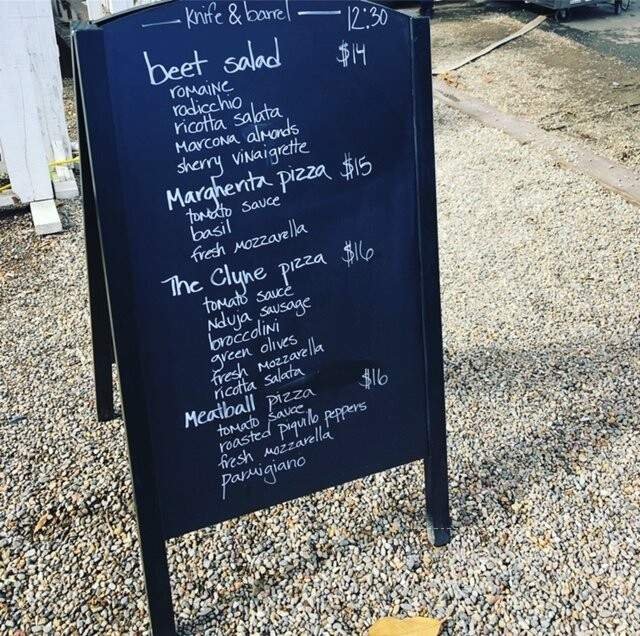 Knife & barrel 12:30
beet salad $14
romaine
radicchio
ricotta salata
Marcona almonds
sherry vinaigrette
Margherita pizza $15
tomato sauce
basil
fresh mozzarella
The Clyne pizza $16
tomato sauce
Nduja sausage
broccolini
green olives
fresh mozzarella
ricotta salata
Meatball pizza $16
tomato sauce
roasted piquillo peppers
fresh mozzarella
parmigiano